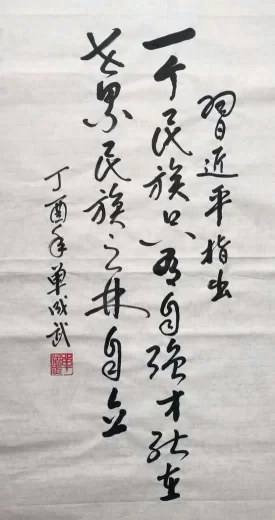 習近平指出
一个民族只有自强才能在
世界民族之林自立
丁酉年单成武